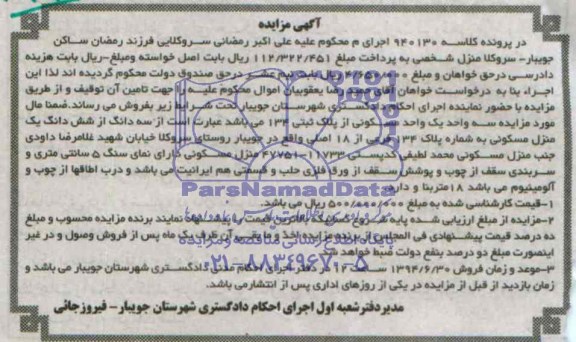 آگهی مزایده
در پرونده کلاسه ۹۴۰۱۳۰ اجرای م محکوم علیه علی اکبر رمضانی سروکلایی فرزند رمضان ساکن
جویبار- سروکلا منزل شخصی به پرداخت مبلغ ۱۱۲/۳۲۲/۴۵۱ ریال بابت اصل خواسته ومبلغ-ریال بابت هزینه
دادرسی درحق خواهان و مبلغ ریال بابت نیم عشر درحق صندوق دولت محکوم گردیده اند لذا این
اجراء بنا به درخواست خواهان آقای رضا یعقوبیان اموال محکوم علیه را جهت تامین آن توقیف و از طریق
مزایده با حضور نماینده اجرای احکام دادگستری شهرستان جویبار تحت شرایط زیر بفروش می رساند.ضمنا مال
مورد مزایده سه واحد یک واحد مسکونی از پلاک ثبتی ۱۳۴ می باشد عبارت است از سه دانگ از شش دانگ یک
منزل مسکونی به شماره پلاک ۳۴ فرعی از ۱۸ اصلی واقع در جویبار روستای سروکلا خیابان شهید غلامرضا داودی
جنب منزل مسکونی محمد لطیفی کدپستی ۱۱۷۳۳-۴۷۷۵۱ منزل مسکونی دارای نمای سنگ ۵ سانتی متری و
سربندی سقف از چوب و پوشش سقف از ورق فلزی حلب و قسمتی هم ایرانیت می باشد و درب اطاقها از چوب و
آلومینیوم می باشد ۱۸متربنا و دارد
۱-قیمت کارشناسی شده به مبلغ ۵۰۰/۰۰۰/۰۰۰ ریال می باشد.
۲-مزایده از مبلغ ارزیابی شده پایه شروع کسانیکه بالاترین قیمت را پیشنهاد نمایند برنده مزایده محسوب و مبلغ
ده درصد قیمت پیشنهادی فی المجلس از برنده مزایده اخذ و مابقی آن ظرف یک ماه پس از فروش وصول و در غیر
اینصورت مبلغ دو درصد بنفع دولت ضبط خواهد شد
۳-موعد و زمان فروش ۱۳۹۴/۶/۳۰ ساعت در دفتر اجرای احکام مدنی دادگستری شهرستان جویبار می باشد و
زمان بازدید از قبل از مزایده در یکی از روزهای اداری پس از انتشارمی باشد.
مدیردفترشعبه اول اجرای احکام دادگستری شهرستان جویبار- فیروزجائی
ParsNamadData
پایگاه اطلاع رسانی مناقصه و مزایده
۰۲۱-۸۸۳۴۹۶۷۰-۵